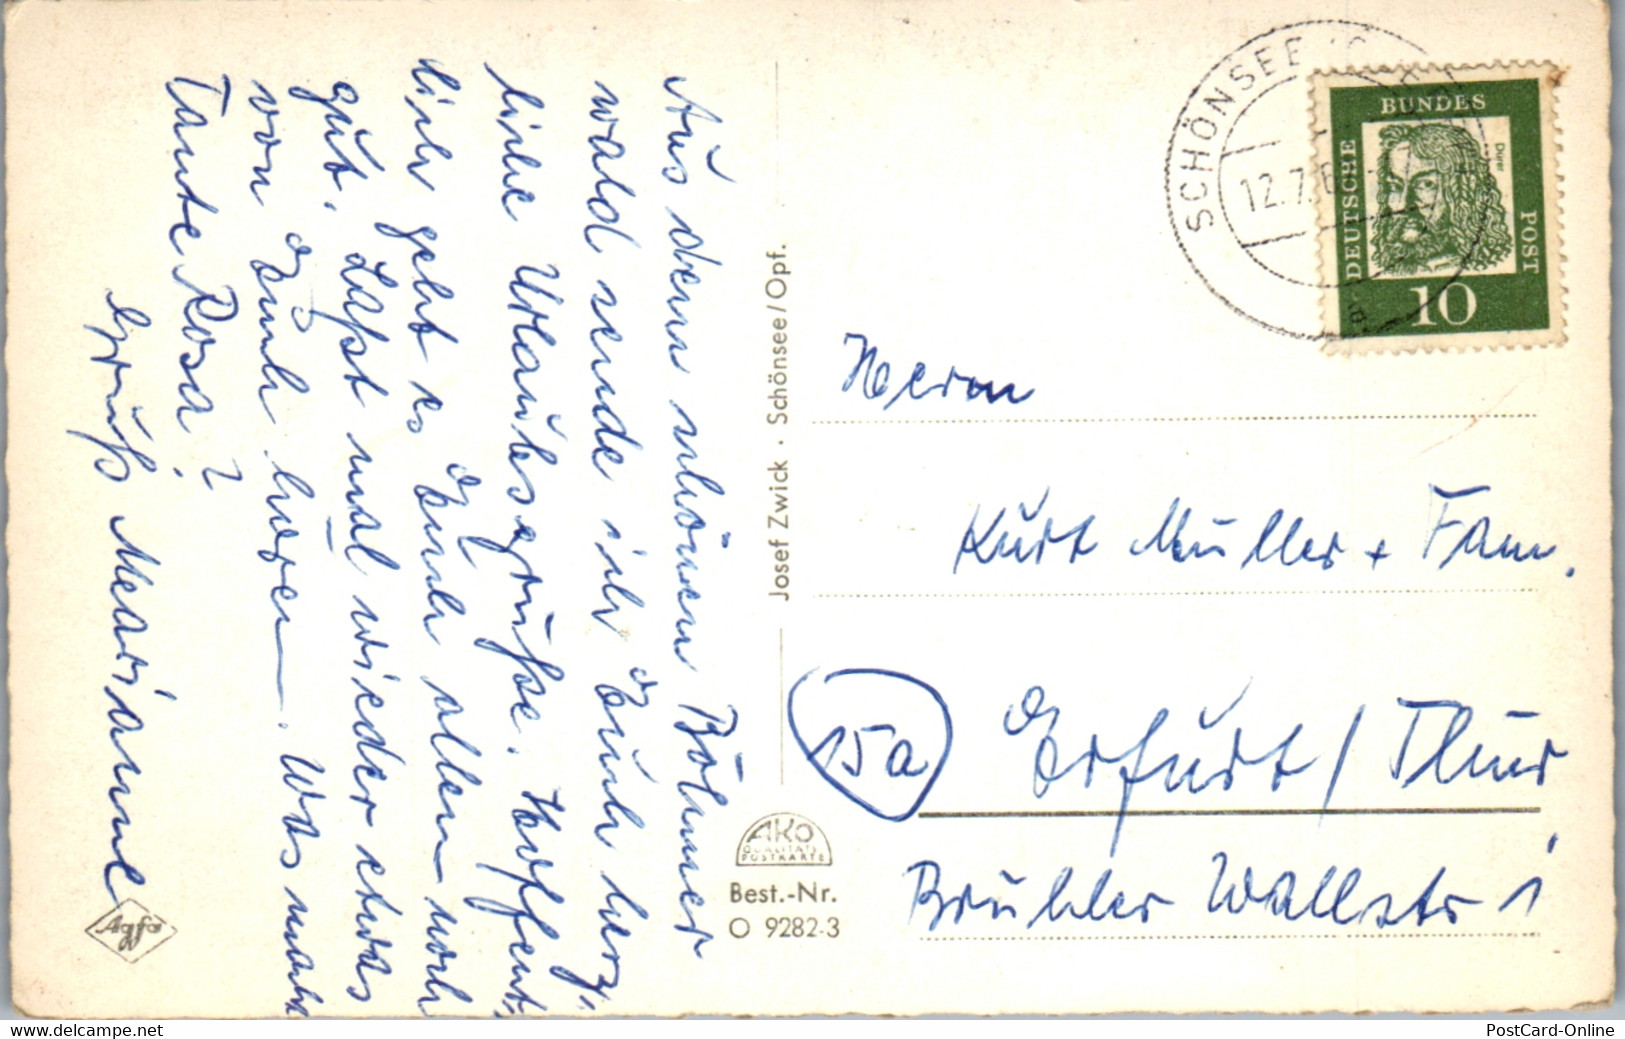 Aus dem schönen Böhmer
wald sende ich Euch herz-
liche Urlaubsgrüße. Hoffent-
lich geht es Euch allen noch
gut. Laßt mal wieder etwas
von Euch hören. Was macht
Tante Rosa?
Gruß Marianne
Agfa
Josef Zwick · Schönsee/Opf.
AKO
QUALITÄTS
POSTKARTE
Best.-Nr.
O 9282-3
SCHÖNSEE
12.7.
DEUTSCHE
BUNDES
POST
Dürer
10
Herrn
Kurt Müller + Fam.
15a
Erfurt / Thür
Brühler Wallstr 1
delcampe.net
PostCard-Online